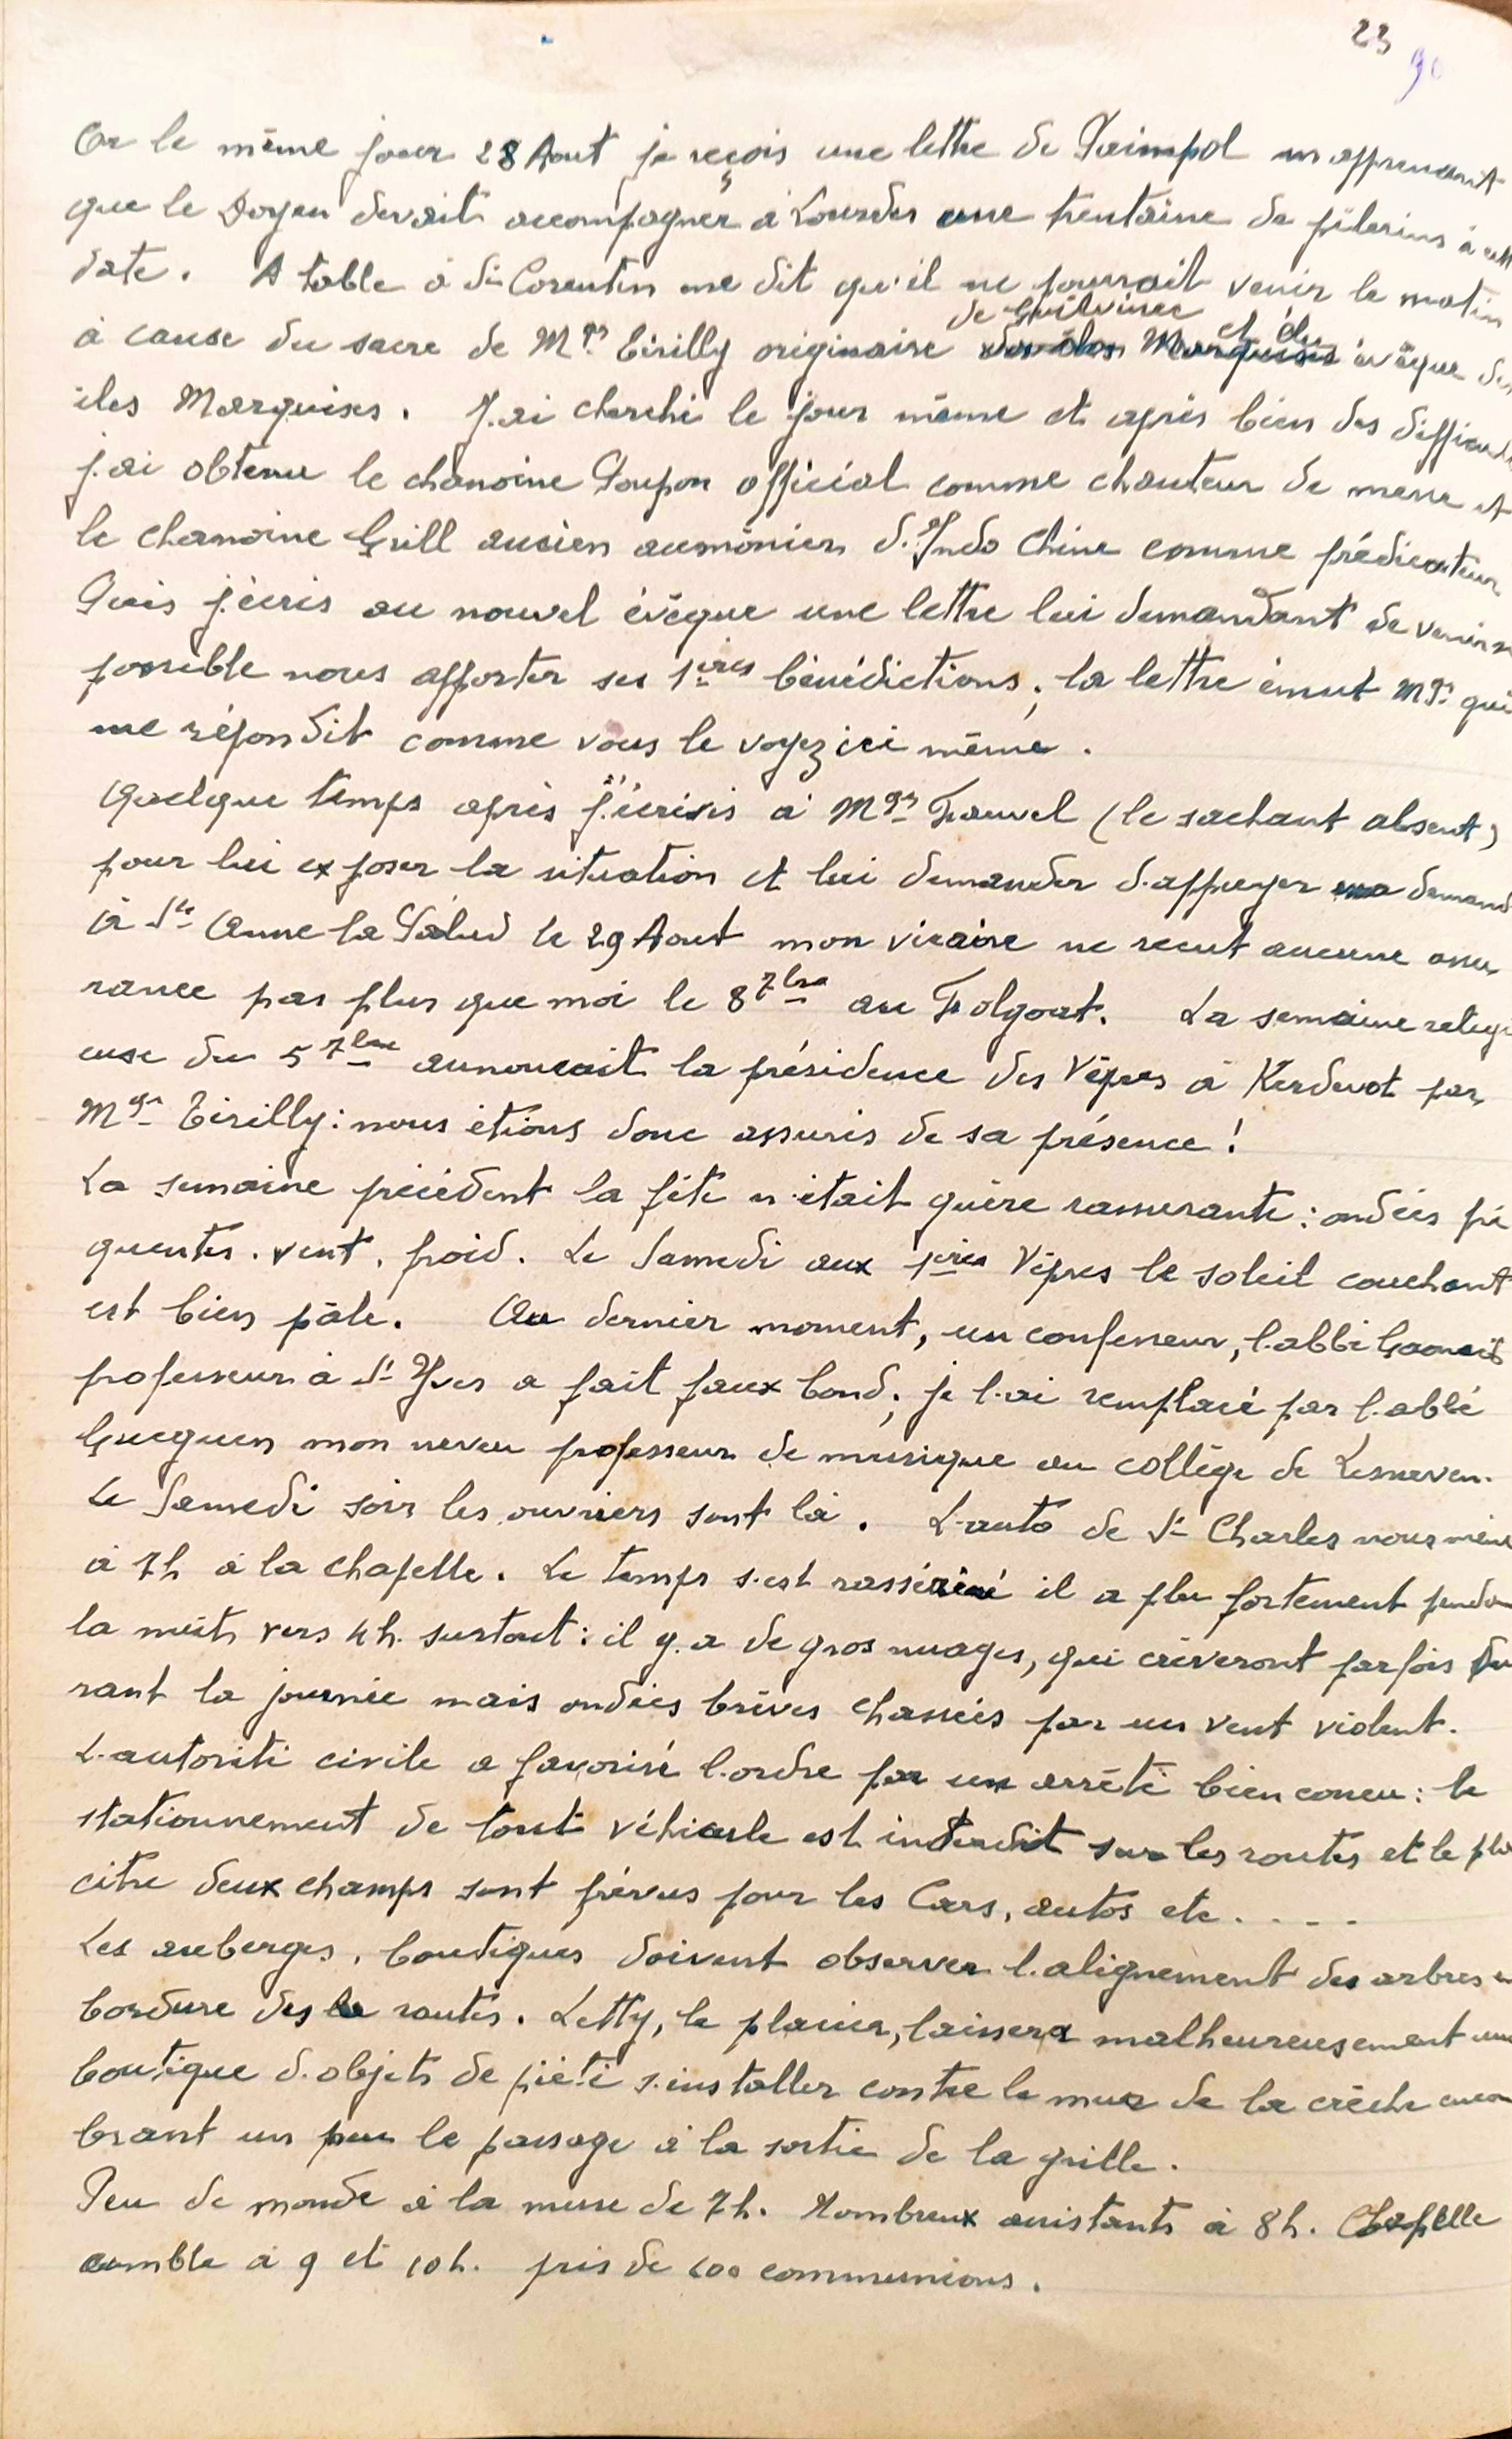 23
90
Or le même jour 28 Aout je reçois une lettre de Paimpol m'apprenant
que le Doyen devait accompagner à Lourdes une trentaine de pèlerins à cette
date. A table à St Corentin me dit qu'il ne pourrait venir le matin
de Guilvinec et élu
à cause du sacre de Mgr Tirilly originaire des îles Marquises évêque des
îles Marquises. J'ai cherché le jour même et après bien des difficul
j'ai obtenu le chanoine Poupon official comme chanteur de messe et
le chanoine Grill ancien aumônier d'Indo Chine comme prédicateur
Puis j'écris au nouvel évêque une lettre lui demandant de venir
possible nous apporter ses 1ères bénédictions; la lettre émut Mgr qui
me répondit comme vous le voyez ici même.
Quelque temps après j'écrivis à Mgr Fauvel (le sachant absent)
pour lui exposer la situation et lui demander d'appuyer ma demand
à Ste Anne la Palud le 29 Aout mon vicaire ne recut aucune assu
rance pas plus que moi le 8 7bre au Folgoat. La semaine religi
euse du 5 7bre annoncait la présidence des Vêpres à Kerdevot par
Mgr Tirilly: nous étions donc assurés de sa présence!
La semaine précédent la fête n'était guère rassurante: ondées fré
quentes. vent, froid. Le Samedi aux 1ères Vêpres le soleil couchant
est bien pâle. Au dernier moment, un confesseur, l'abbé
professeur à St Yves a fait faux bond; je l'ai remplacé par l'abbé
Gueguen mon neveu professeur de musique au collège de Lesneven.
Le Samedi soir les ouvriers sont là. L'auto de St Charles nous mène
à 7h à la chapelle. Le temps s'est rasséréné il a plu fortement penda
la nuit vers 4h. surtout: il y a de gros nuages, qui crèveront parfois du
rant la journée mais ondées brèves chassées par un vent violent.
L'autorité civile a favorisé l'ordre par un arrêté bien concu: le
stationnement de tout véhicule est interdit sur les routes et le pla
citre deux champs sont prévus pour les Cars, autos etc....
Les auberges, boutiques doivent observer l'alignement des arbres en
bordure des routes. Letty, le placier, laissera malheureusement une
boutique d'objets de piété s'installer contre le mur de la crèche encom
brant un peu le passage à la sortie de la grille.
Peu de monde à la messe de 7h. Nombreux assistants à 8h. Chapelle
comble à 9 et 10h. près de 400 communions.